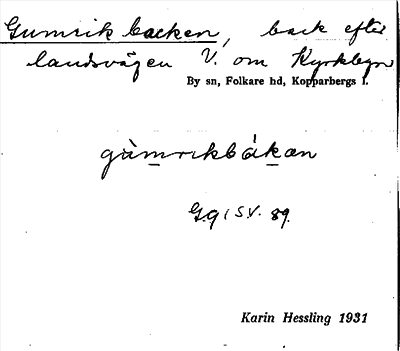 Gumrikbacken, back efter
landsvägen V. om Kyrkbyn
By sn, Folkare hd, Kopparbergs l.
gàmrikbákan
G.q 1 S.V. 89.
Karin Hessling 1931